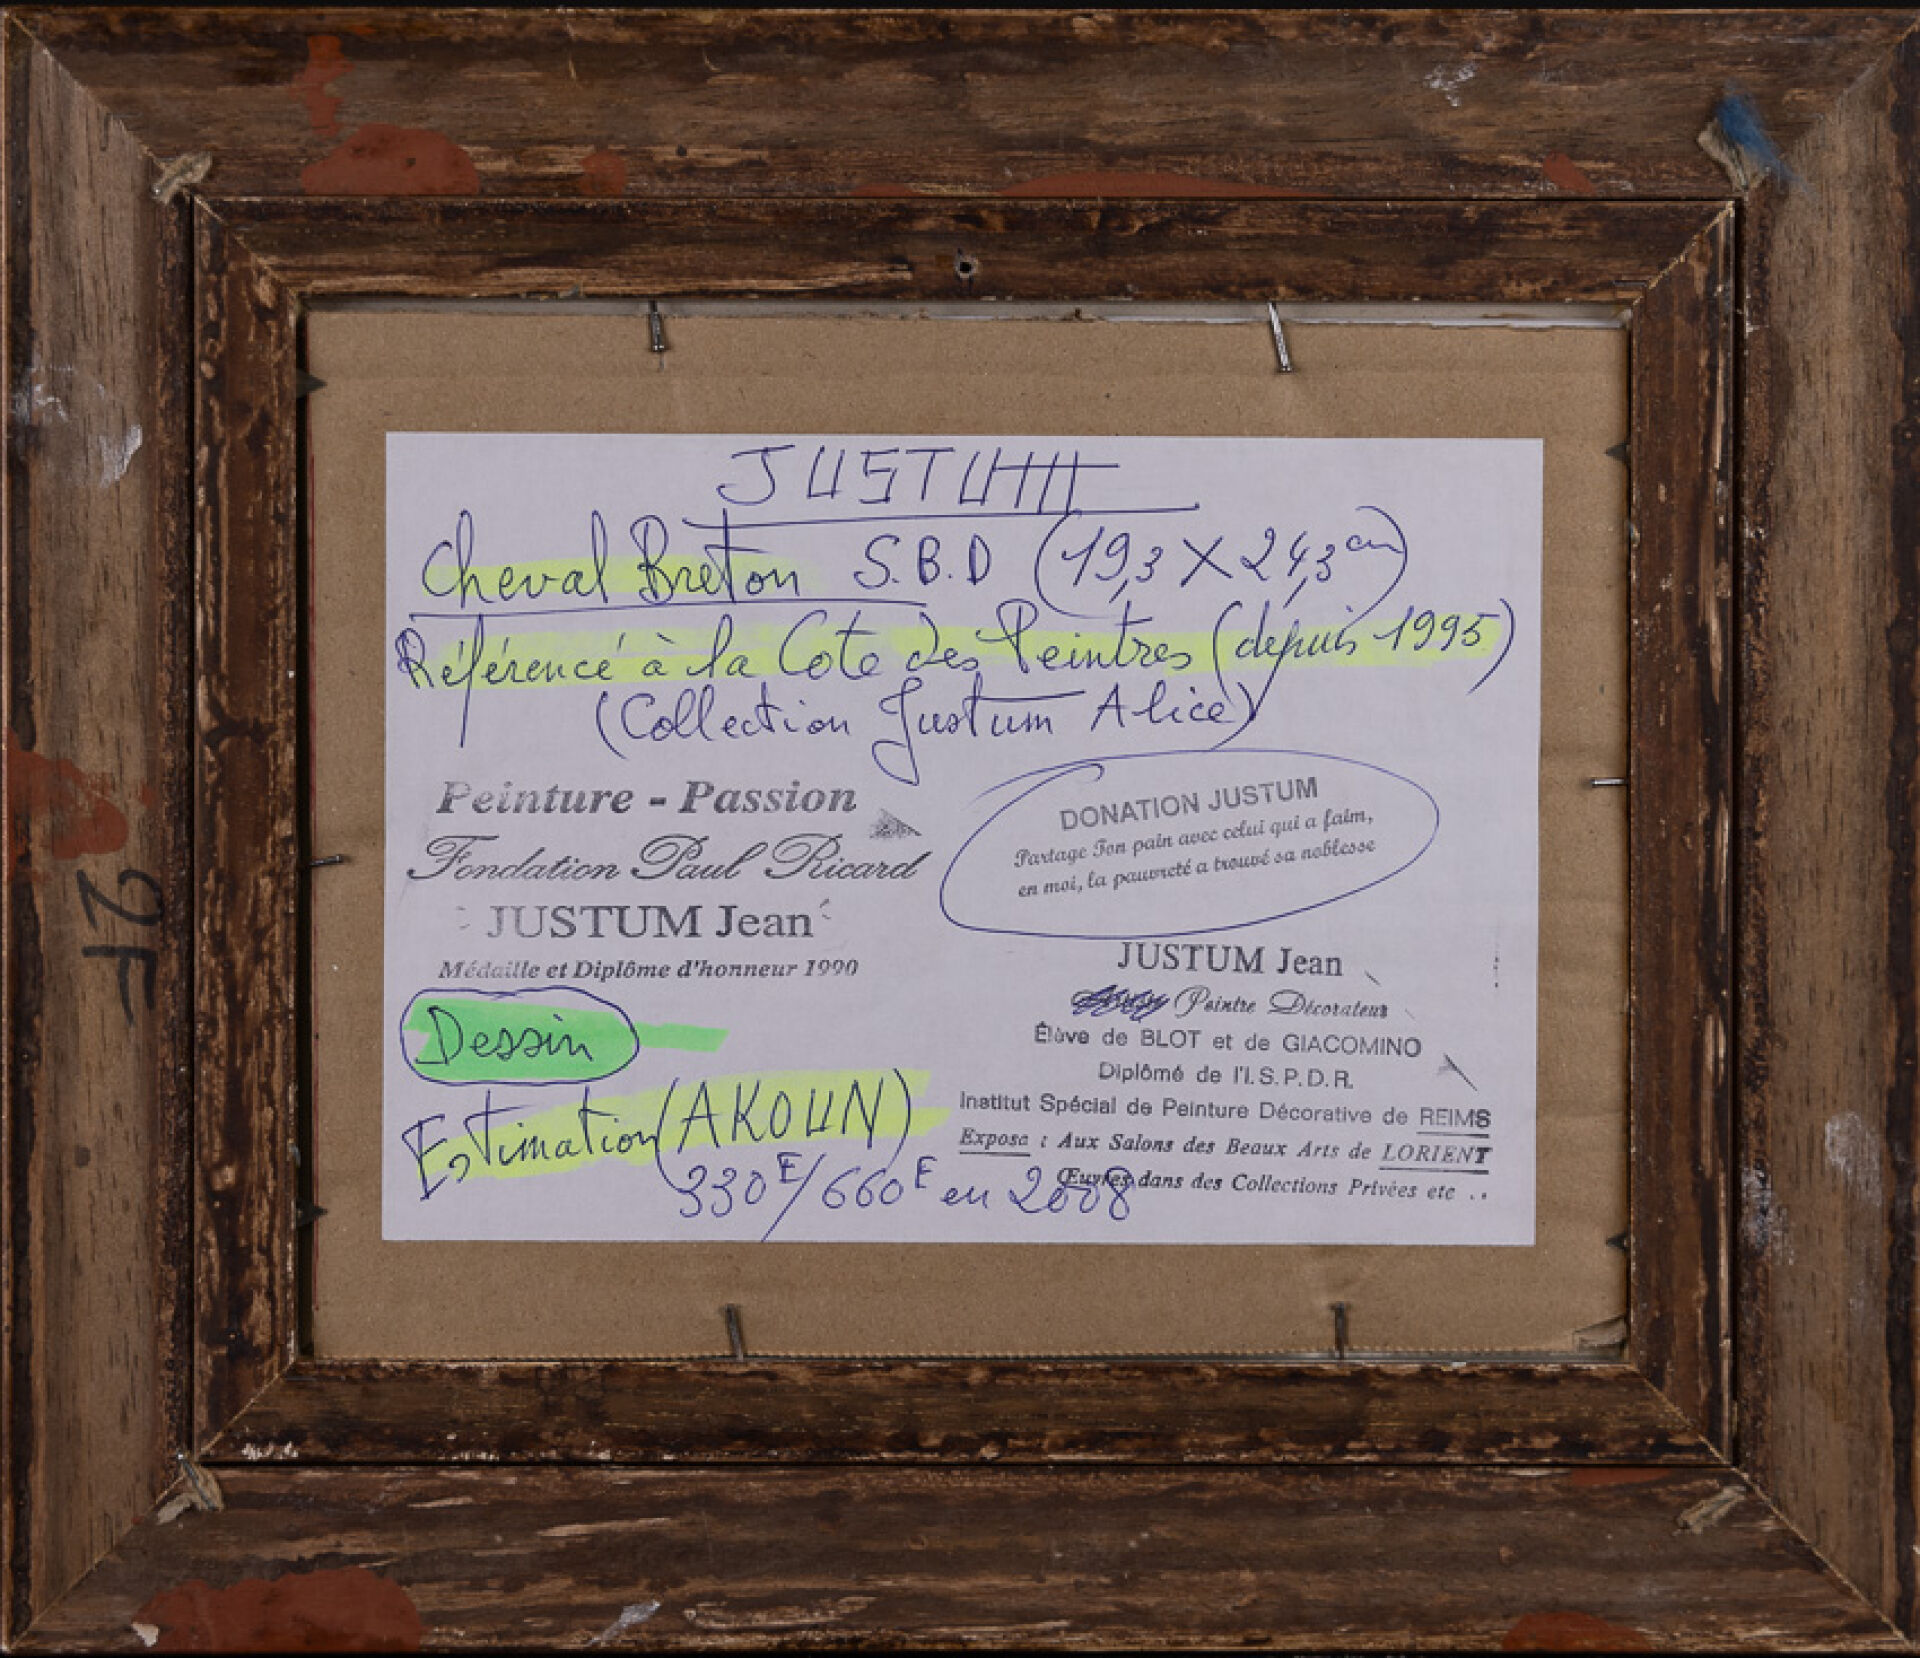 JUSTUM
Cheval Breton S.B.D (19,3 X 24,3 cm)
Référencé à la Cote des Peintres (depuis 1995)
(Collection Justum Alice)
Peinture - Passion
Fondation Paul Ricard
JUSTUM Jean
Médaille et Diplôme d'honneur 1990
DONATION JUSTUM
Partage Ton pain avec celui qui a faim,
en moi, la pauvreté a trouvé sa noblesse
JUSTUM Jean
Peintre Décorateur
Élève de BLOT et de GIACOMINO
Diplômé de l'I.S.P.D.R.
Institut Spécial de Peinture Décorative de REIMS
Expose : Aux Salons des Beaux Arts de LORIENT
Œuvres dans des Collections Privées etc ..
Dessin
Estimation (AKOUN)
330E/660E en 2008